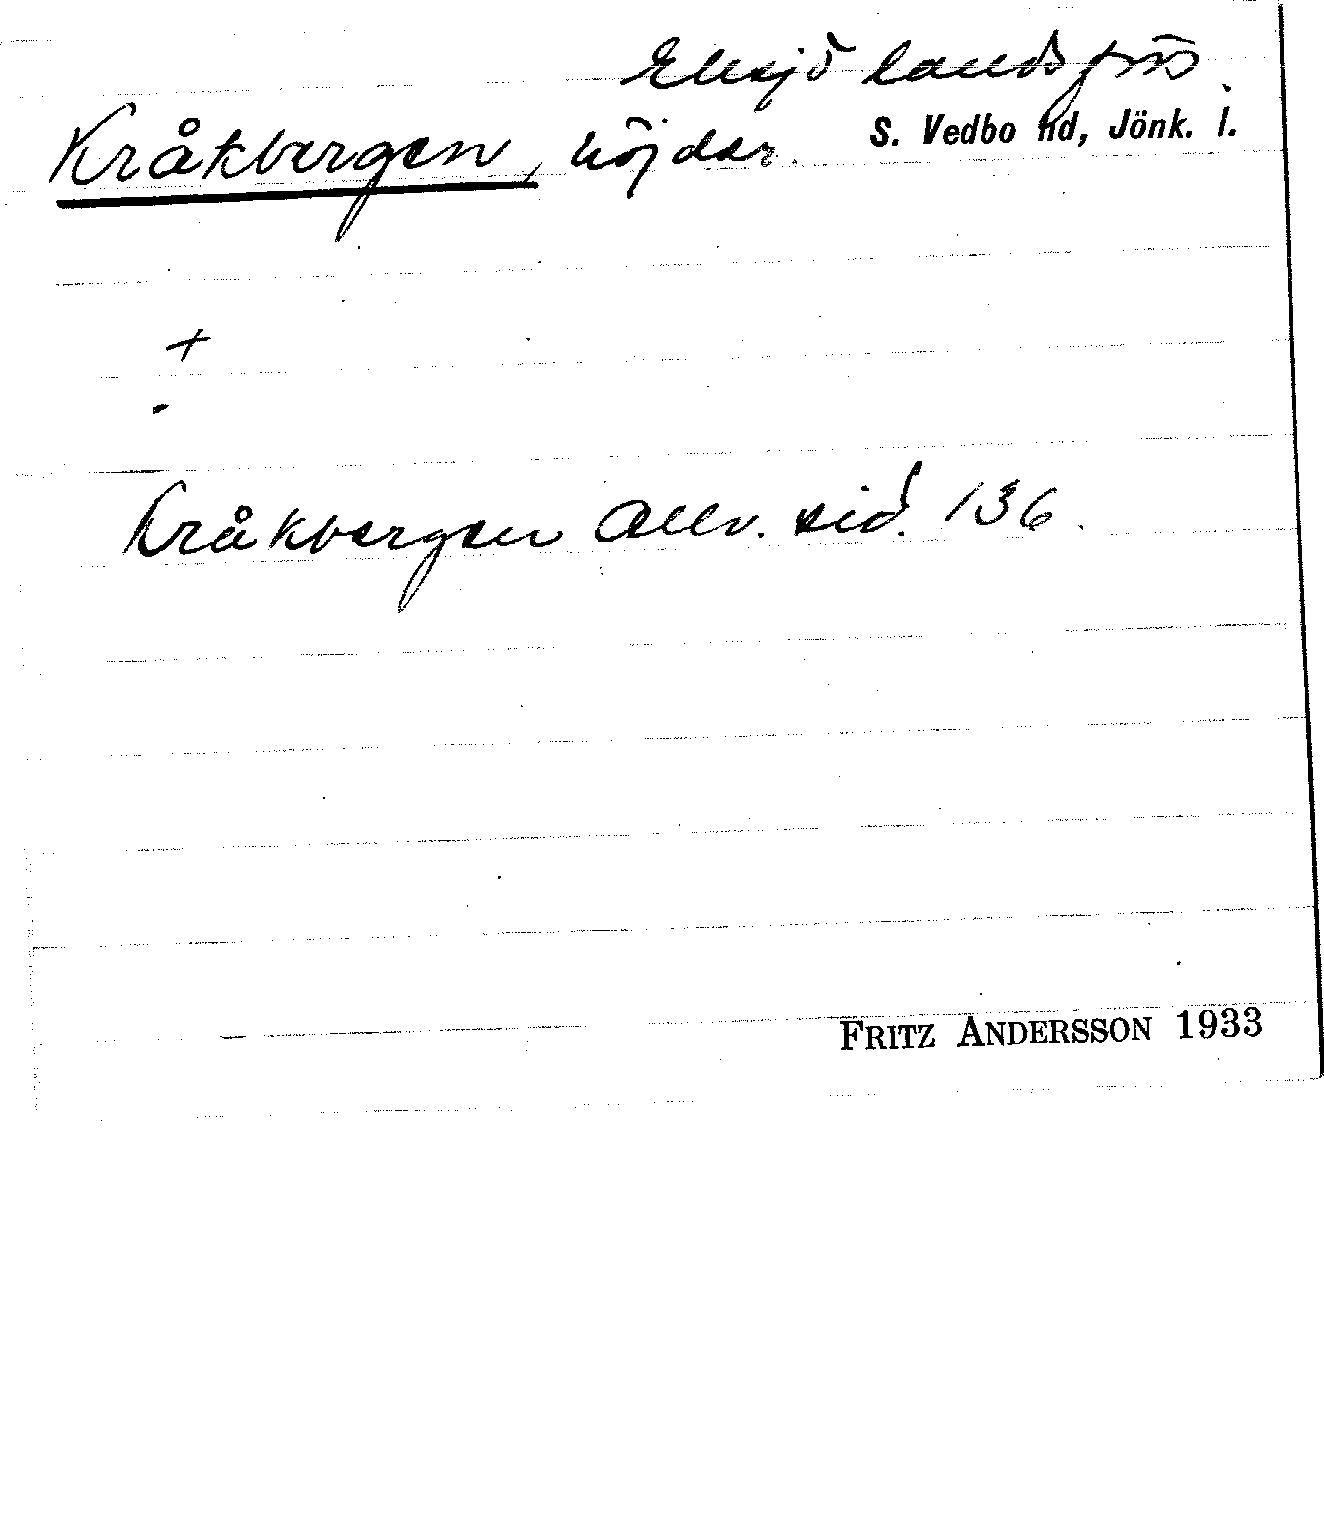 Eksjö landsförs.
Kråkbergen, höjder. S. Vedbo hd, Jönk. l.
+
-
Kråkbergen Allv. sid. 136.
FRITZ ANDERSSON 1933